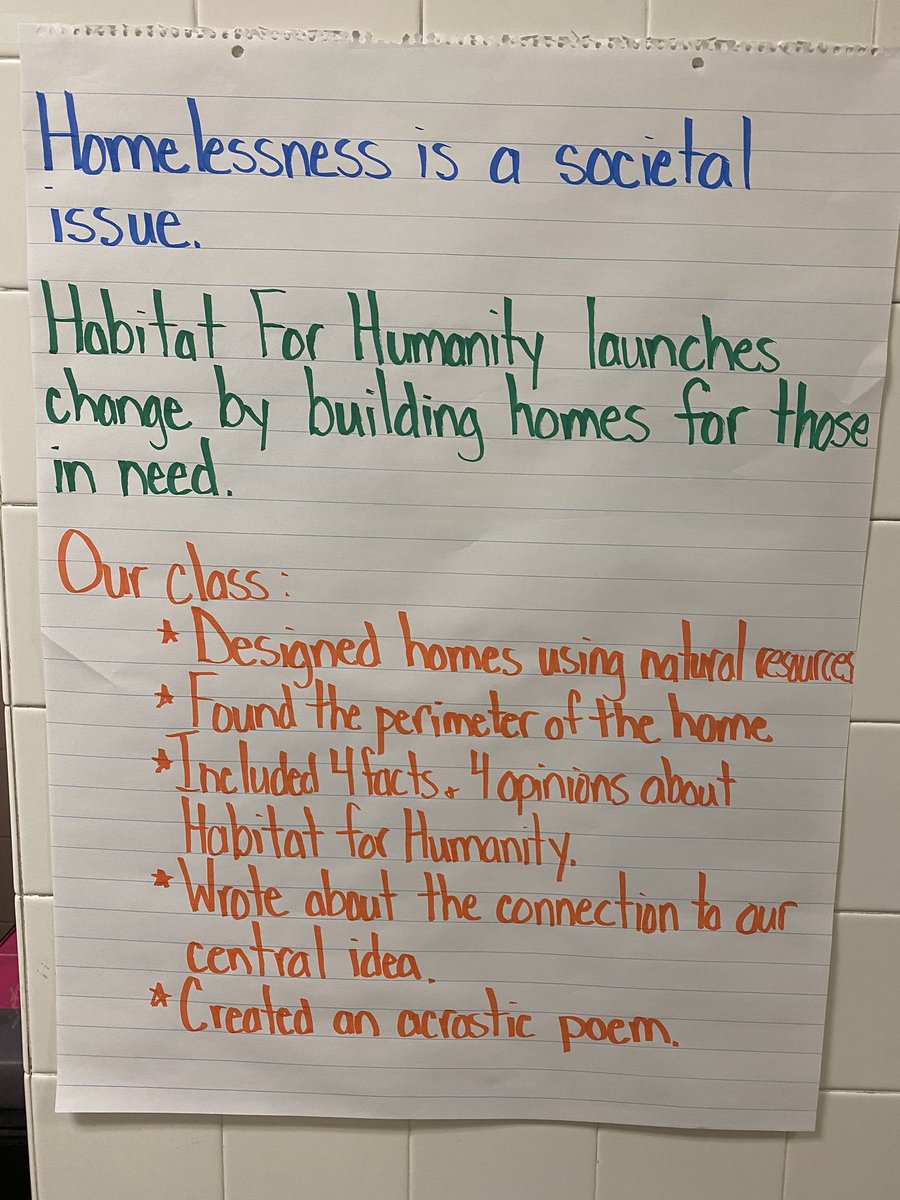 Homelessness is a societal
issue.
Habitat For Humanity launches
change by building homes for those
in need.
Our class:
* Designed homes using natural resources
* Found the perimeter of the home
* Included 4 facts & 4 opinions about
Habitat for Humanity.
* Wrote about the connection to our
central idea.
* Created an acrostic poem.